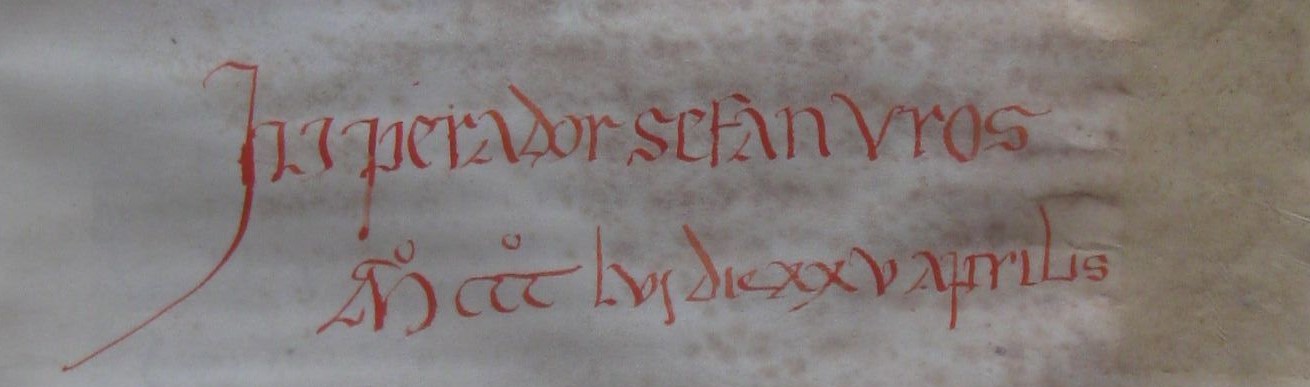 Inperador Stefan Vros
Mº cccº lvj die xxv aprilis